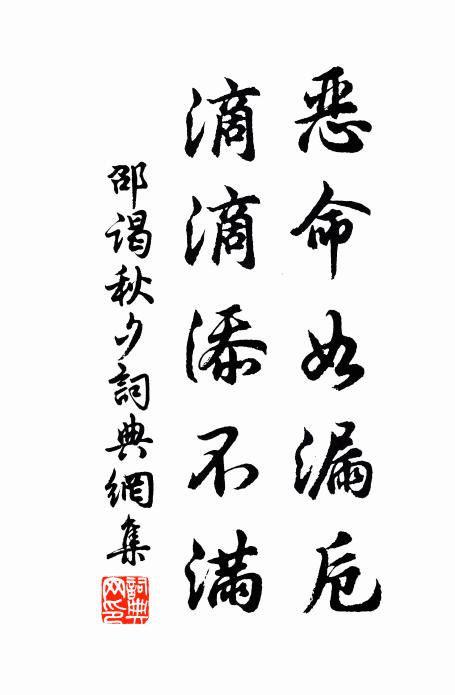 恶命如漏卮
滴滴添不满
邵谒秋夕詞典網集
詞典
网印